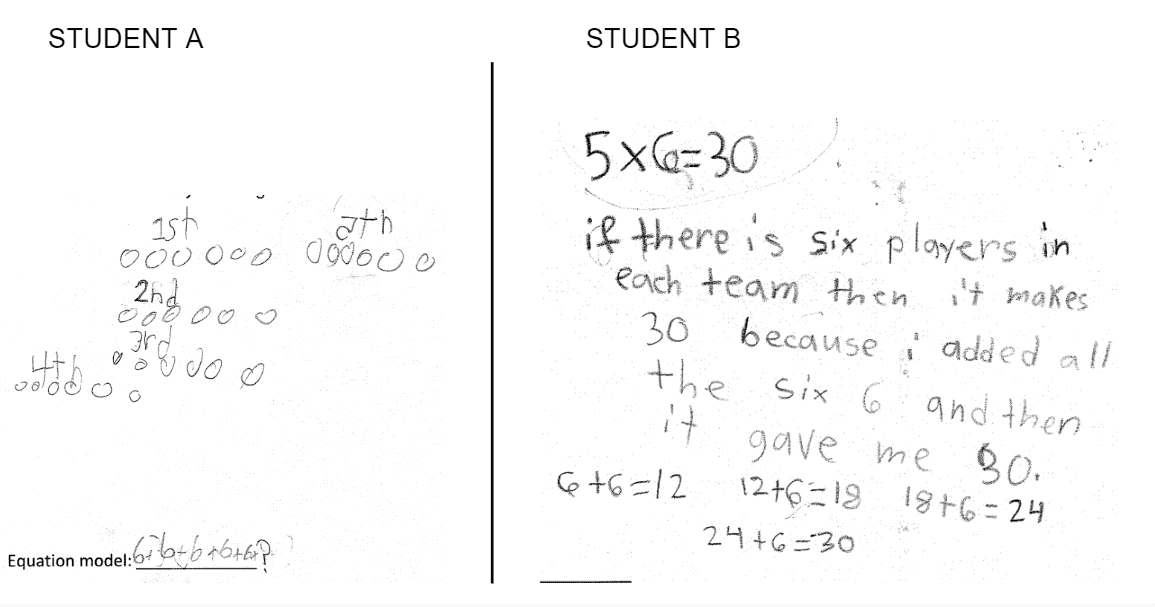 STUDENT A
STUDENT B
1st
5th
2nd
3rd
4th
Equation model: 6+6+6+6+6=?
5×6=30
if there is six players in
each team then it makes
30 because i added all
the six 6 and then
it gave me 30.
6+6=12 12+6=18 18+6=24
24+6=30